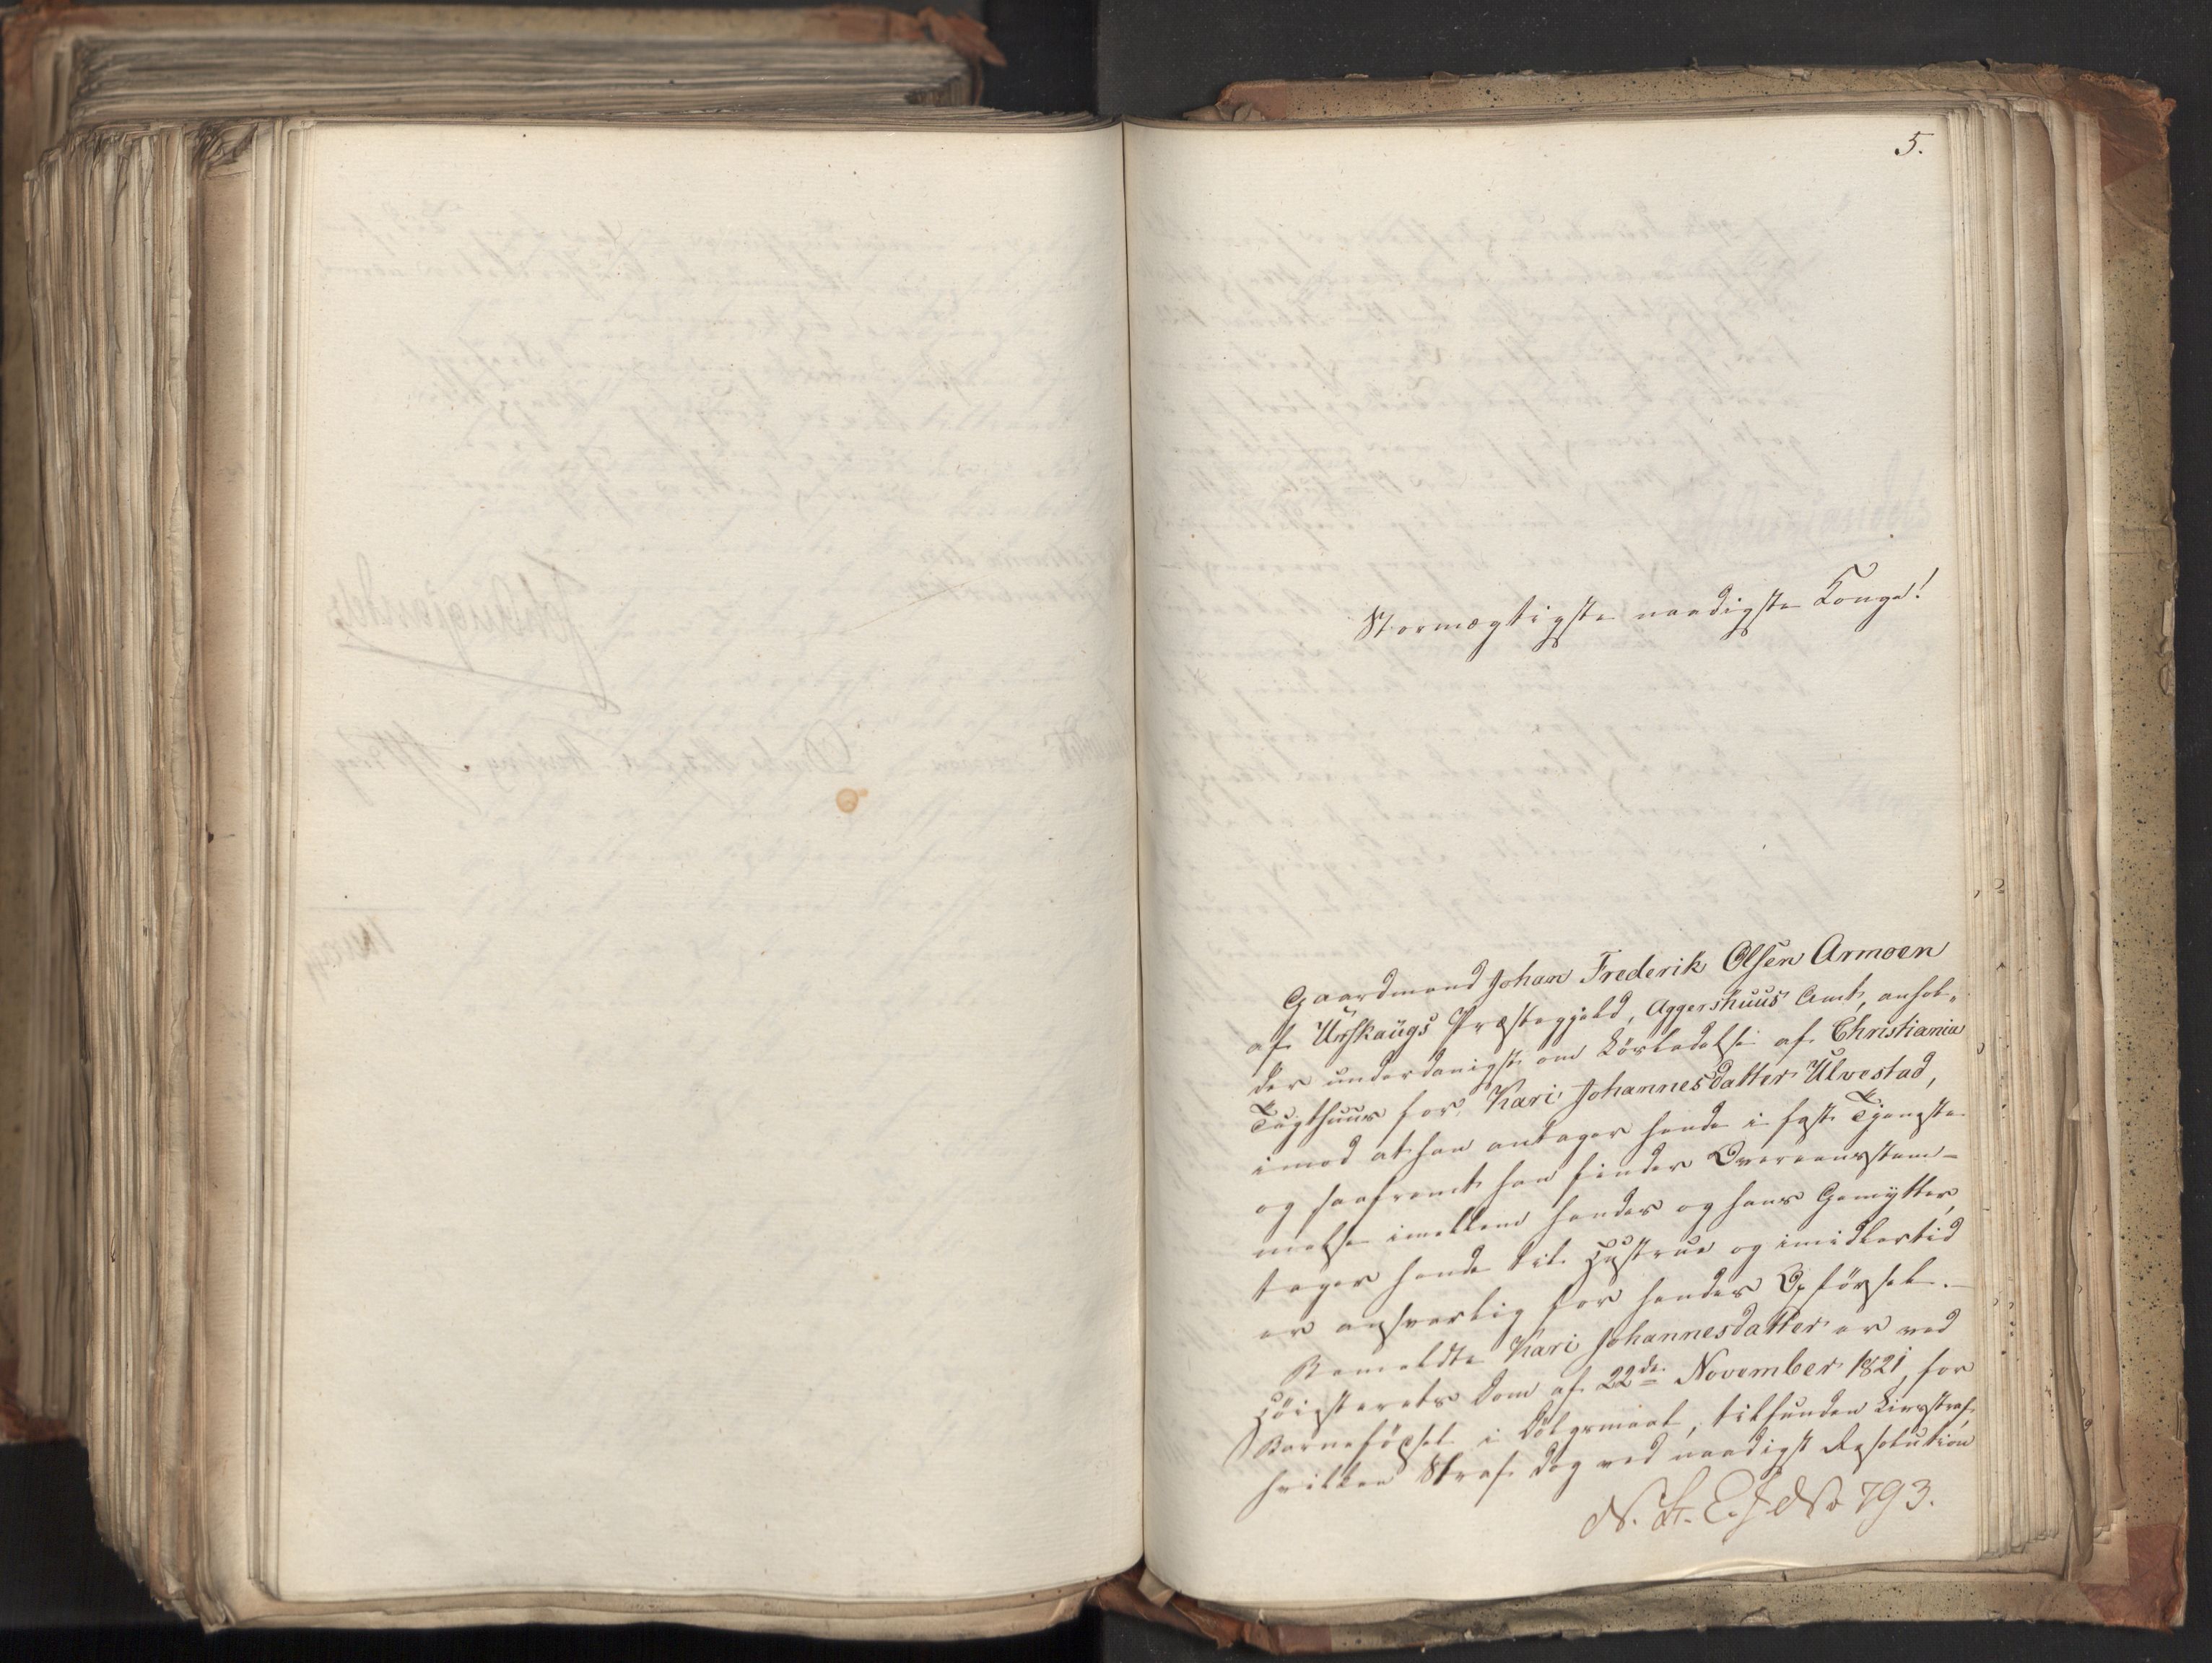 5.
Stormægtigste naadigste Konge!
Gaardmand Johan Frederik Olsen Armoen
af Urskaugs Præstegjeld, Aggershuus Amt, anhol-
der underdanigst om Løsladelse af Christiania
Tugthuus for Kari Johannesdatter Ulvestad,
imod at han antager hende i fast Tjeneste
og saafremt han finder Overeensstem-
melse imellem hendes og hans Gemytter,
tager hende til Hustrue og imidlertid
er ansvarlig for hendes Opførsel.
Bemeldte Kari Johannesdatter er ved
Høiesterets Dom af 22de November 1821, for
Barnefødsel i Dølgsmaal, tilfunden Livsstraf,
hvilken Straf dog ved naadigst Resolution
N. St. E. J. No 793.